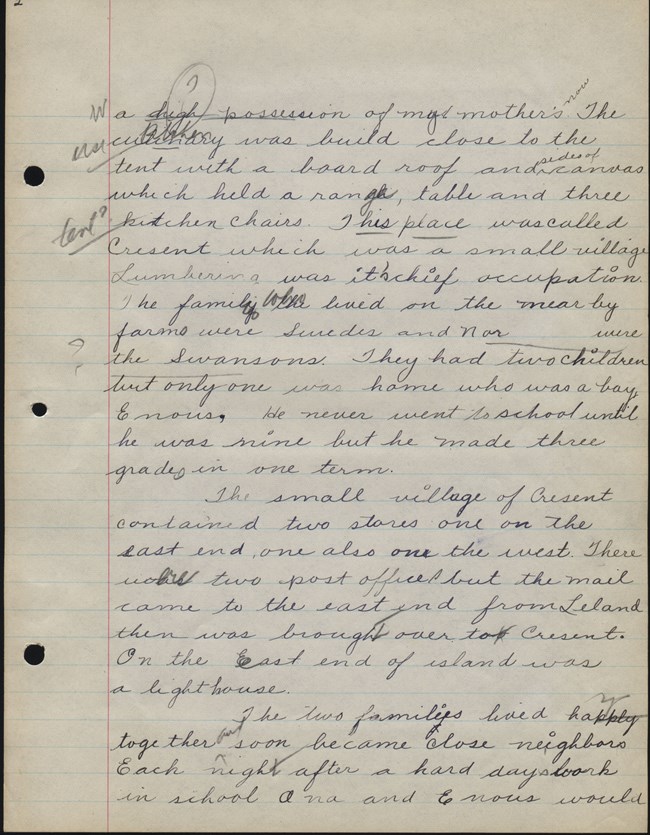 2
a high possession of my mother's now The
culinary was build close to the
tent with a board roof and sides of canvas
which held a range, table and three
kitchen chairs. This place was called
Cresent which was a small village
Lumbering was it's chief occupation.
The family who lived on the near by
farms were Swedes and Nor were
? the Swansons. They had two children
but only one was home who was a boy
Enous. He never went to school until
he was nine but he made three
grades in one term.
The small village of Cresent
contained two stores one on the
east end, one also one the west. There
were two post offices but the mail
came to the east end from Leland
then was brought over to Cresent.
On the East end of island was
a lighthouse.
The two families lived happly
together but soon became close neighbors
Each night after a hard days work
in school Ona and Enous would